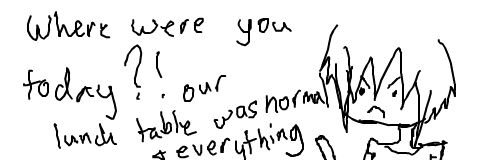 Where were you
today?! our
lunch table was normal
& everything